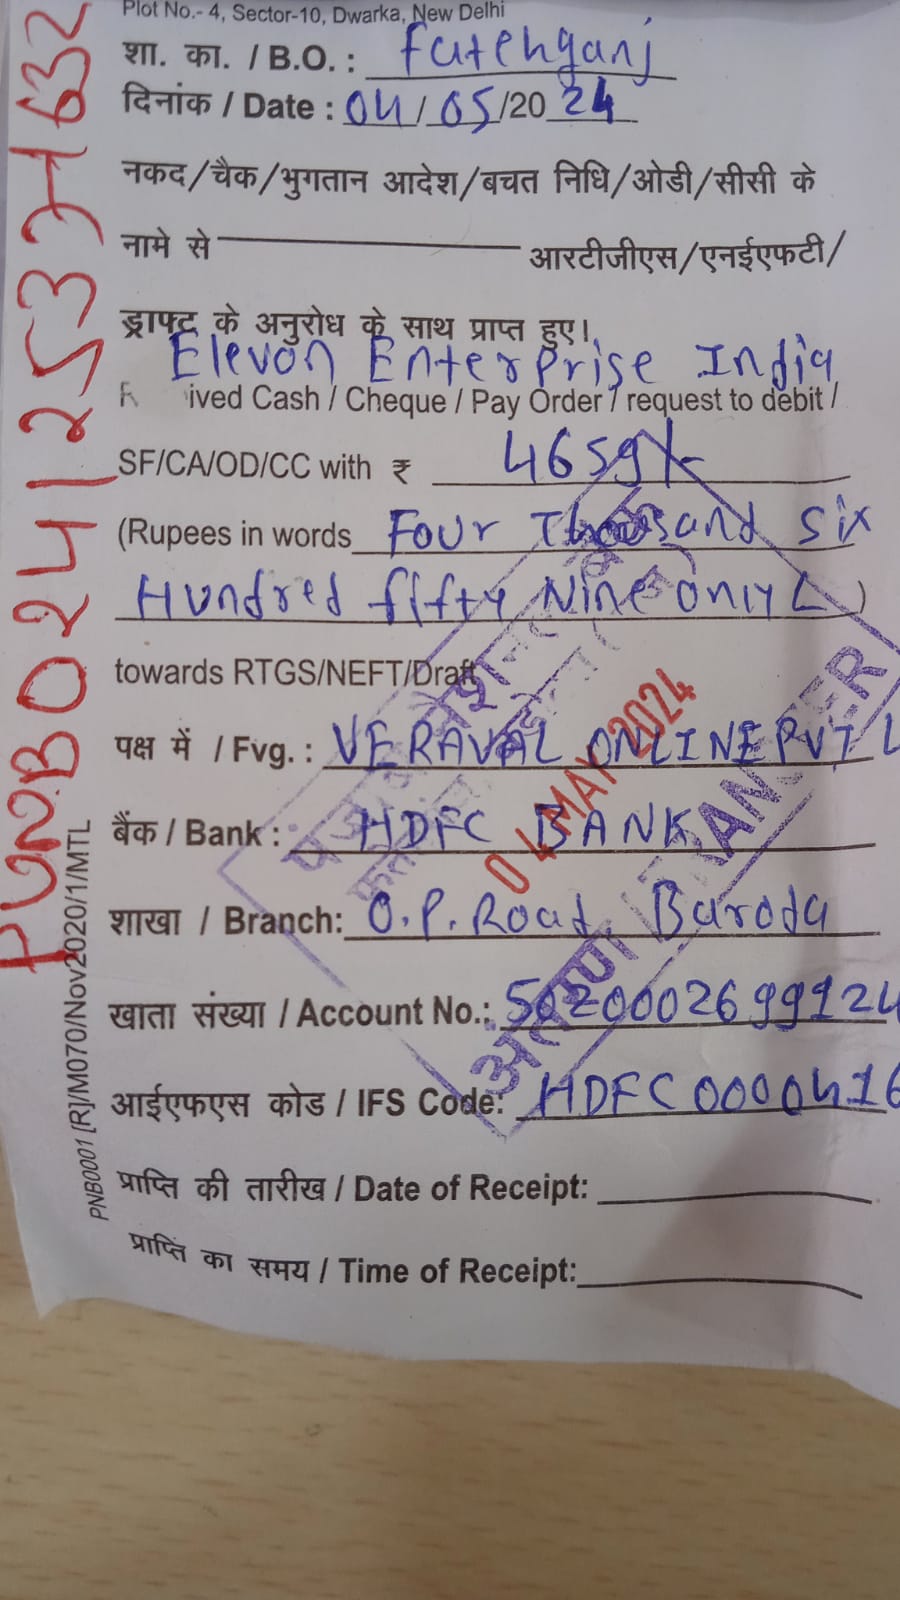 Plot No.- 4, Sector-10, Dwarka, New Delhi
शा. का. / B.O. : Fatehganj
दिनांक / Date : 04/05/2024
नकद/चैक/भुगतान आदेश/बचत निधि/ओडी/सीसी के
नामे से आरटीजीएस/एनईएफटी/
ड्राफ्ट के अनुरोध के साथ प्राप्त हुए।
Elevon Enterprise India
R ived Cash / Cheque / Pay Order / request to debit /
SF/CA/OD/CC with ₹ 4659/-
(Rupees in words Four Thousand Six
Hundred fifty Nine only )
towards RTGS/NEFT/Draft
पक्ष में / Fvg. : VERAVAL ONLINE PVT L
बैंक / Bank : HDFC BANK
शाखा / Branch: O.P. Road, Baroda
खाता संख्या / Account No.: 50200026999124
आईएफएस कोड / IFS Code: HDFC0000416
प्राप्ति की तारीख / Date of Receipt:
प्राप्ति का समय / Time of Receipt:
PNB0001 [R]/M070/Nov2020/1/MTL
04 MAY 2024
अन्तरण / TRANSFER